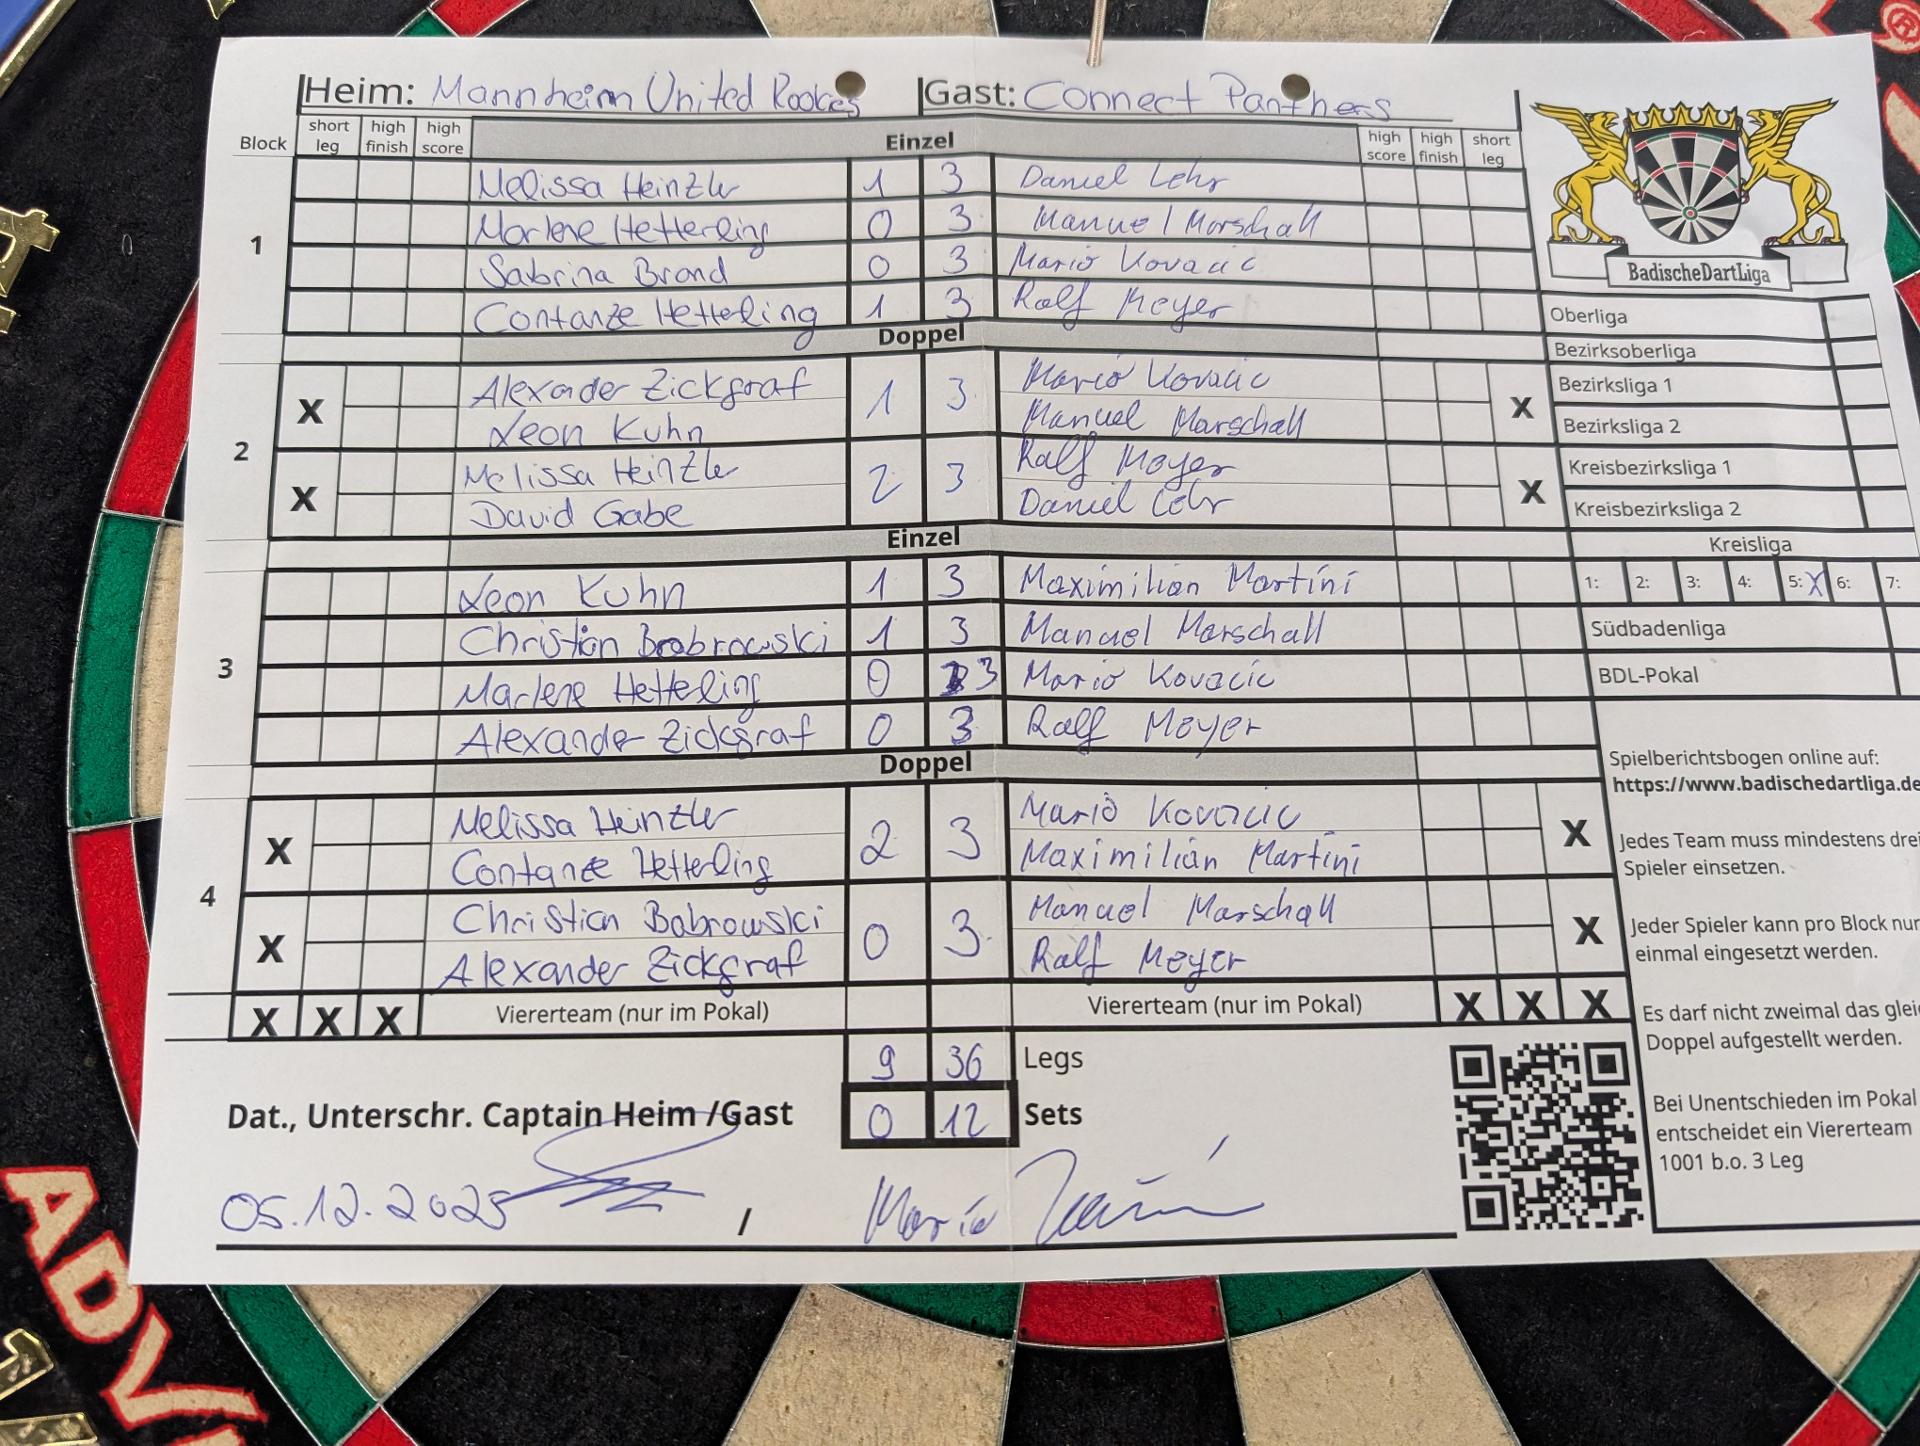 Heim: Mannheim United Rookies Gast: Connect Panthers
Block short leg high finish high score Einzel high score high finish short leg
1
Melissa Heinzler 1 3 Daniel Lehr
Marlene Hetterling 0 3 Manuel Marschall
Sabrina Brand 0 3 Mario Kovacic
Contanze Hetterling 1 3 Ralf Meyer
Doppel
2
X Alexander Zickgraf 1 3 Mario Kovacic X
Leon Kuhn Manuel Marschall
X Melissa Heinzler 2 3 Ralf Meyer X
David Gabe Daniel Lehr
Einzel
3
Leon Kuhn 1 3 Maximilian Martini
Christian Bobrowski 1 3 Manuel Marschall
Marlene Hetterling 0 3 Mario Kovacic
Alexander Zickgraf 0 3 Ralf Meyer
Doppel
4
X Melissa Heinzler 2 3 Mario Kovacic X
Contanze Hetterling Maximilian Martini
X Christian Bobrowski 0 3 Manuel Marschall X
Alexander Zickgraf Ralf Meyer
X X X Viererteam (nur im Pokal) Viererteam (nur im Pokal) X X X
9 36 Legs
Dat., Unterschr. Captain Heim /Gast 0 12 Sets
05.12.2025 / Mario
BadischeDartLiga
Oberliga
Bezirksoberliga
Bezirksliga 1
Bezirksliga 2
Kreisbezirksliga 1
Kreisbezirksliga 2
Kreisliga
1: 2: 3: 4: 5: X 6: 7:
Südbadenliga
BDL-Pokal
Spielberichtsbogen online auf:
https://www.badischedartliga.de
Jedes Team muss mindestens drei
Spieler einsetzen.
Jeder Spieler kann pro Block nur
einmal eingesetzt werden.
Es darf nicht zweimal das glei
Doppel aufgestellt werden.
Bei Unentschieden im Pokal
entscheidet ein Viererteam
1001 b.o. 3 Leg
ADV